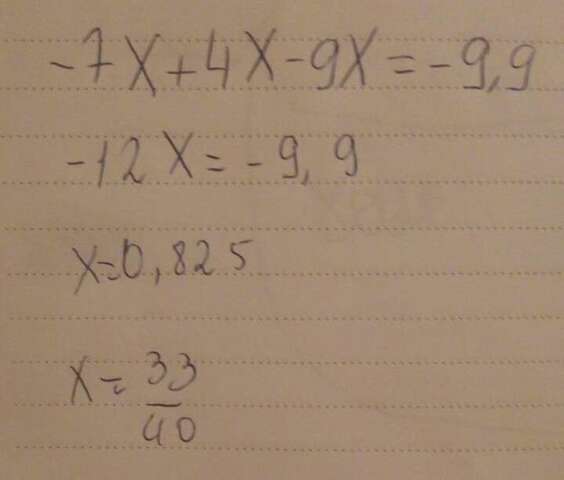 -7X+4X-9X=-9,9
-12X=-9,9
X=0,825
X=33/40